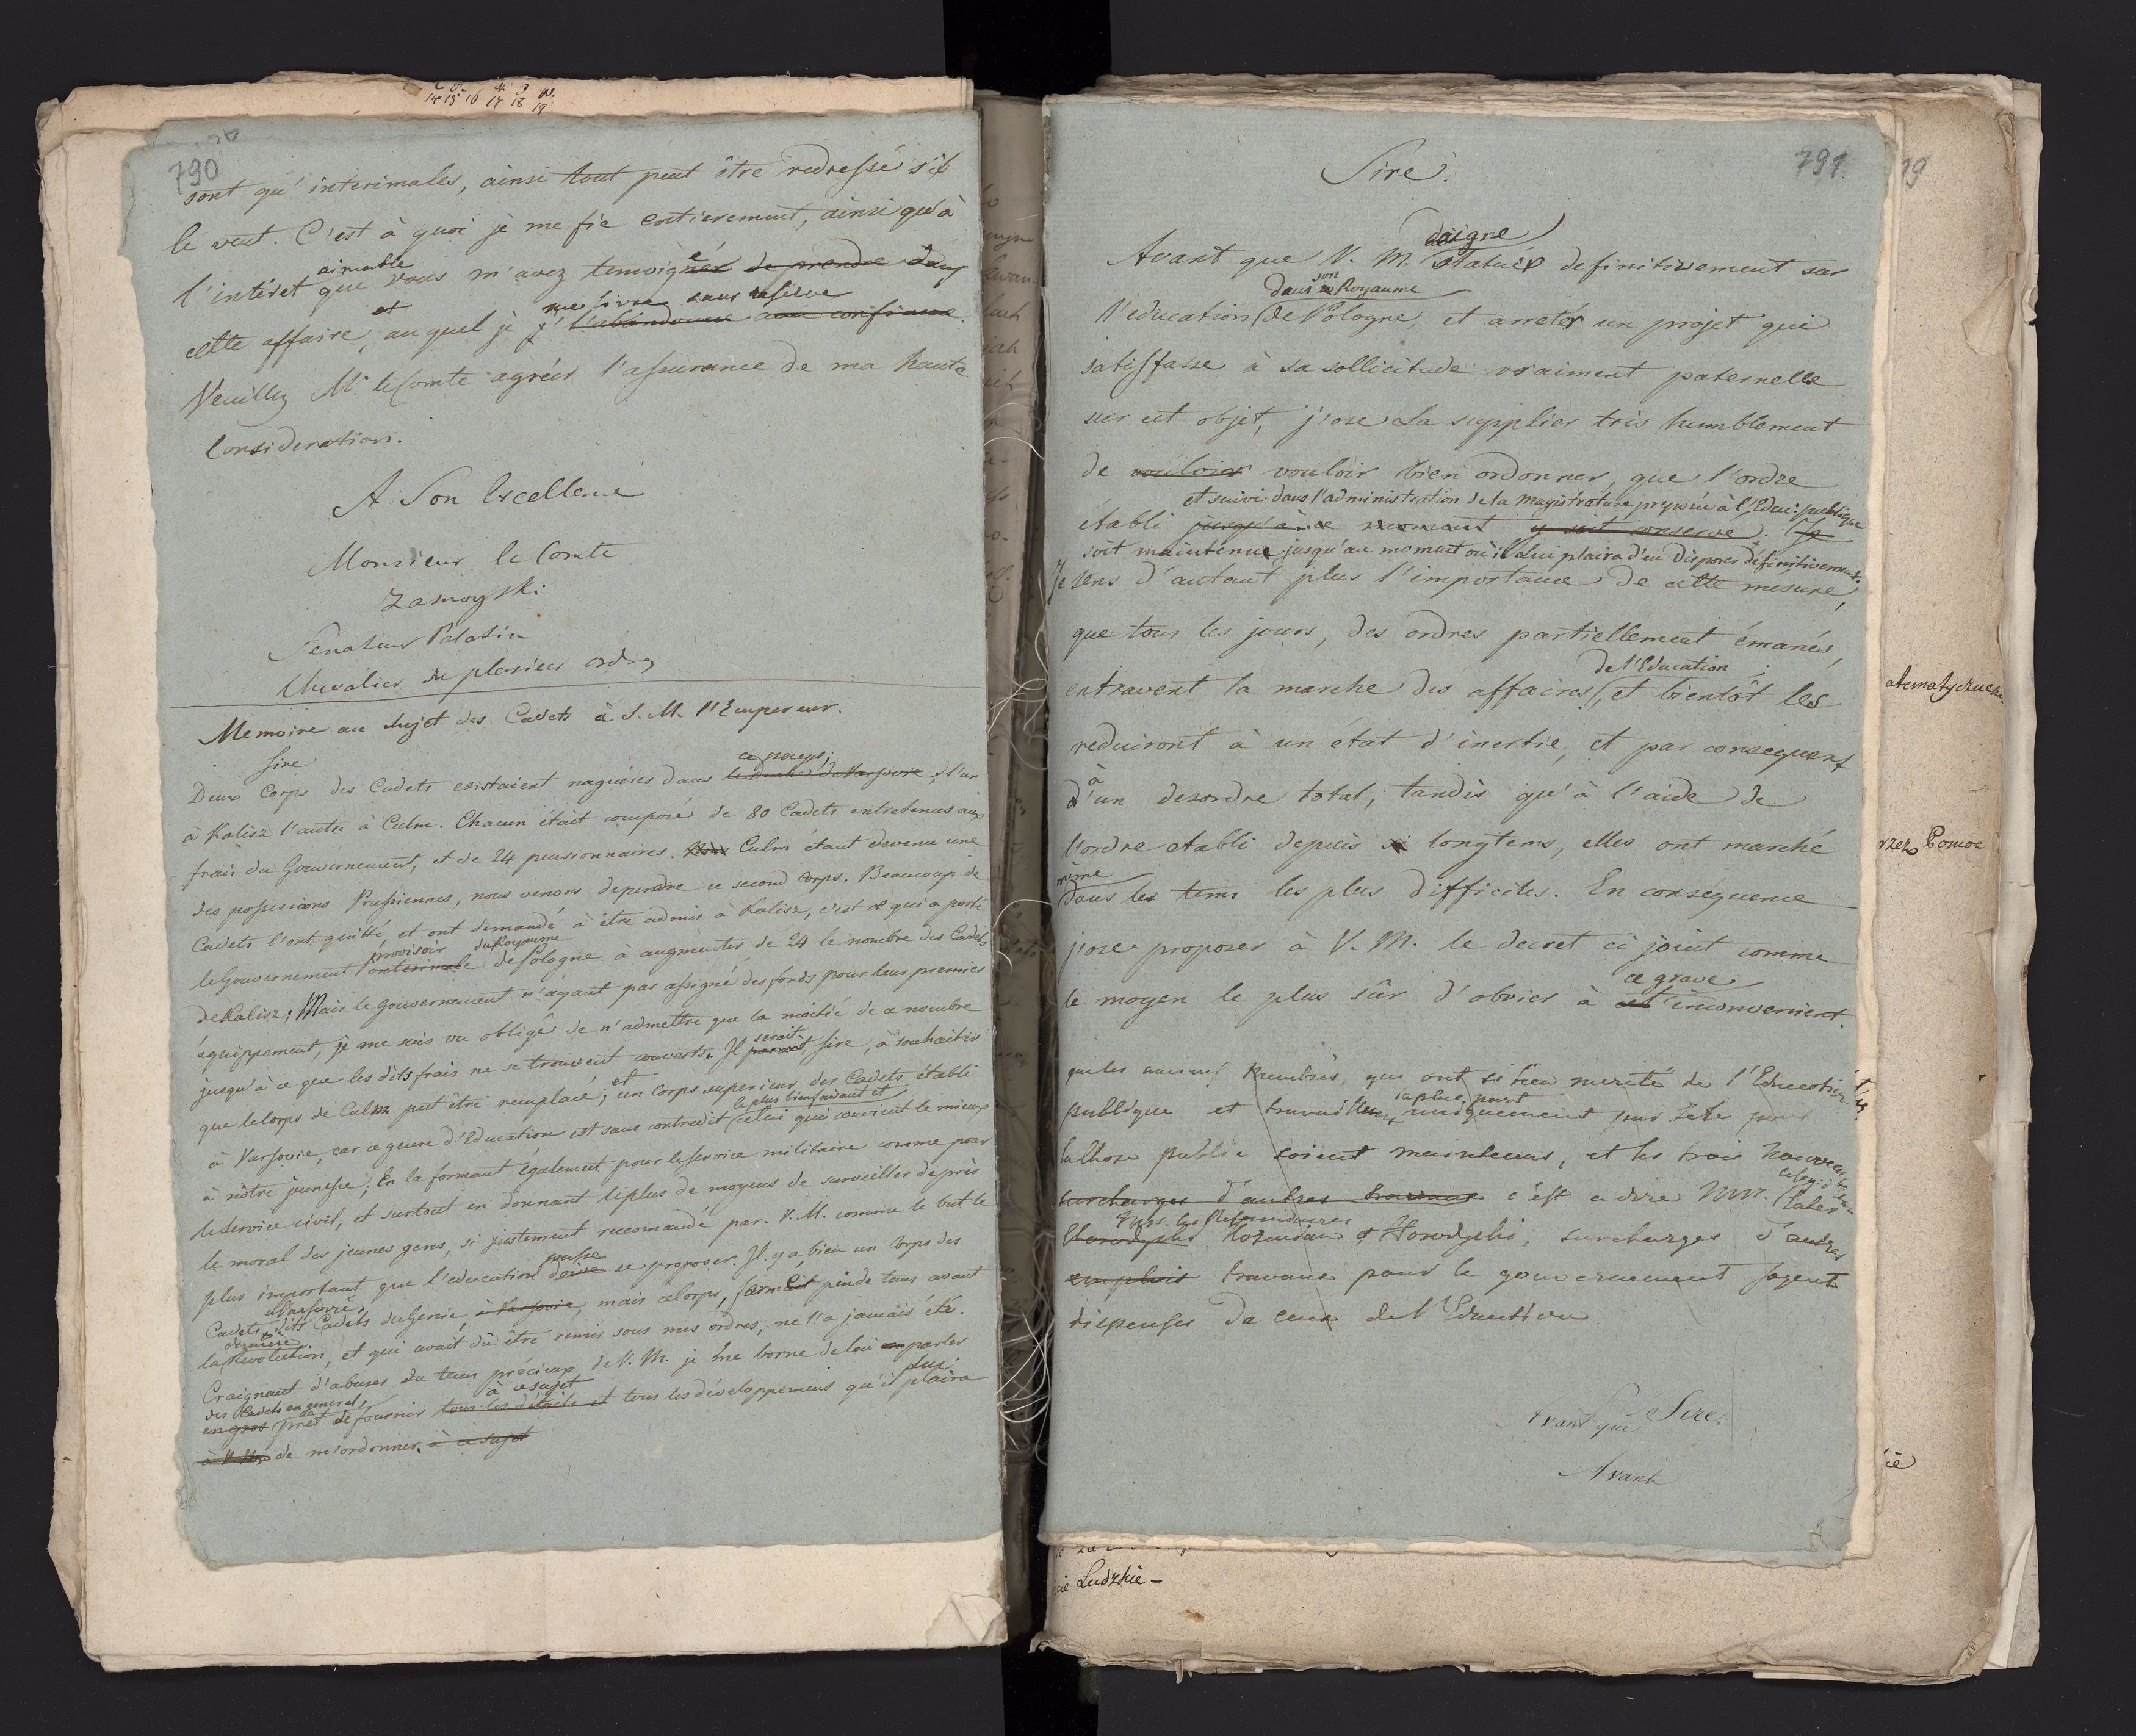 14 15 16 17 18 19
790
sont qu'interimales, ainsi tout peut être redressé s'il
le veut. C'est à quoi je me fie entierement, ainsi qu'à
aimable
l'intérêt que vous m'avez temoigné de prendre dans
et me livre sans reserve
cette affaire, auquel je j' l'abandonne avec confiance.
Veuillez Mr. le Comte agréer l'assurance de ma haute
Consideration.
A Son Excellence
Monsieur le Comte
Zamoyski
Senateur Palatin
Chevalier de plusieurs ordres
Memoire au sujet des Cadets à S. M. l'Empereur.
Sire
ce pays;
Deux Corps des Cadets existaient naguères dans le Duché de Varsovie, l'un
à Kalisz l'autre à Culm. Chacun était composé de 80 Cadets entretenus aux
frais du Gouvernement, et de 24 pensionnaires. Culm étant devenu une
des possessions Prussiennes, nous venons de perdre ce second Corps. Beaucoup de
Cadets l'ont quitté, et ont demandé à être admis à Kalisz, c'est ce qui a porté
provisoir du Royaume
le Gouvernement interimale de Pologne à augmenter de 24 le nombre des Cadets
de Kalisz; Mais le Gouvernement n'ayant pas assigné des fonds pour leur premier
équippement, je me suis vu obligé de n'admettre que la moitié de ce nombre
serait
jusqu'à ce que les dits frais ne se trouvent couverts. Il parait, Sire, à souhaiter
et
que le Corps de Culm put être remplacé; un Corps superieur des Cadets établi
le plus bienfaisant et
à Varsovie, car ce genre d'Education est sans contredit celui qui convient le mieux
à nôtre jeunesse; En la formant également pour le service militaire comme pour
le service civil, et surtout en donnant le plus de moyens de surveiller de près
le moral des jeunes gens, si justement recomandé par V. M. comme le but le
puisse
plus important que l'education doive se proposer. Il y a bien un Corps des
à Varsovie,
Cadets, dits Cadets du Génie, à Varsovie, mais ce Corps, formé peu de tems avant
dernière
la Revolution, et qui avait dû être remis sous mes ordres, ne l'a jamais été.
Craignant d'abuser du tems précieux de V. M. je me borne de lui en parler
des Cadets en general, à ce sujet Lui
en gros prêt de fournir tous les détails et tous les développemens qu'il plaira
à V. M. de m'ordonner. à ce sujet
791.
Sire!
daigne
Avant que V. M. statuer definitivement sur
dans son Royaume
l'education de Pologne, et arreter un projet qui
satisfasse à sa sollicitude vraiment paternelle
sur cet objet, j'ose La supplier très humblement
de vouloir vouloir bien ordonner, que l'ordre
et suivi dans l'administration de la Magistrature preposée à l'Educ: publique
établi jusqu'à ce moment y soit conservé. Je
soit maintenu jusqu'au moment où il Lui plaira d'en disposer définitivement.
Je sens d'autant plus l'importance de cette mesure,
que tous les jours, des ordres partiellement émanés,
de l'Education
entravent la marche des affaires, et bientôt les
reduiront à un état d'inertie, et par consequent
à
d'un desordre total, tandis qu'à l'aide de
l'ordre etabli depuis si longtems, elles ont marché
même
dans les tems les plus difficiles. En conséquence
j'ose proposer à V. M. le decret ci joint comme
ce grave
le moyen le plus sûr d'obvier à cet inconvenient.
que les anciens Membres, qui ont si bien merité de l'Education
la plus part
publique et travaillent uniquement par Zele pour
la chose publique soient maintenus, et les trois nouveaux
surchargés d'autres travaux c'est a dire MM.
MM. les Referendaires
Horodyski Kozmian & Horodyski, surchargés d'autres
emplois travaux pour le gouvernement soyent
dispensés de ceux de l'Education
Avant que Sire.
Avant
atematyczne
rzez Pomoc
ie Ludzkie -